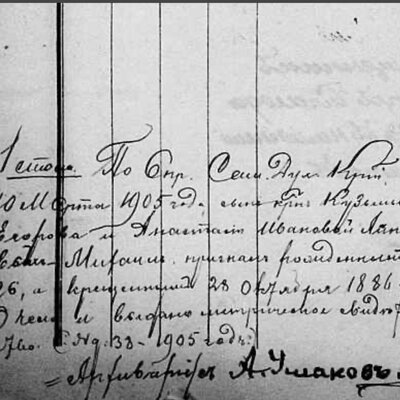 1 стола. По Опр. Сам. Дух. Конс.
10 Марта 1905 года, сынъ крт. Кузьмы
Егорова и Анастасіи Ивановой
Михаилъ признанъ рожденнымъ
26, а крещеннымъ 28 Октября 1886
О чемъ и выдано метрическое свидѣт
(№ 33 - 1905 годъ)
= Архиваріусъ А. Ушаковъ